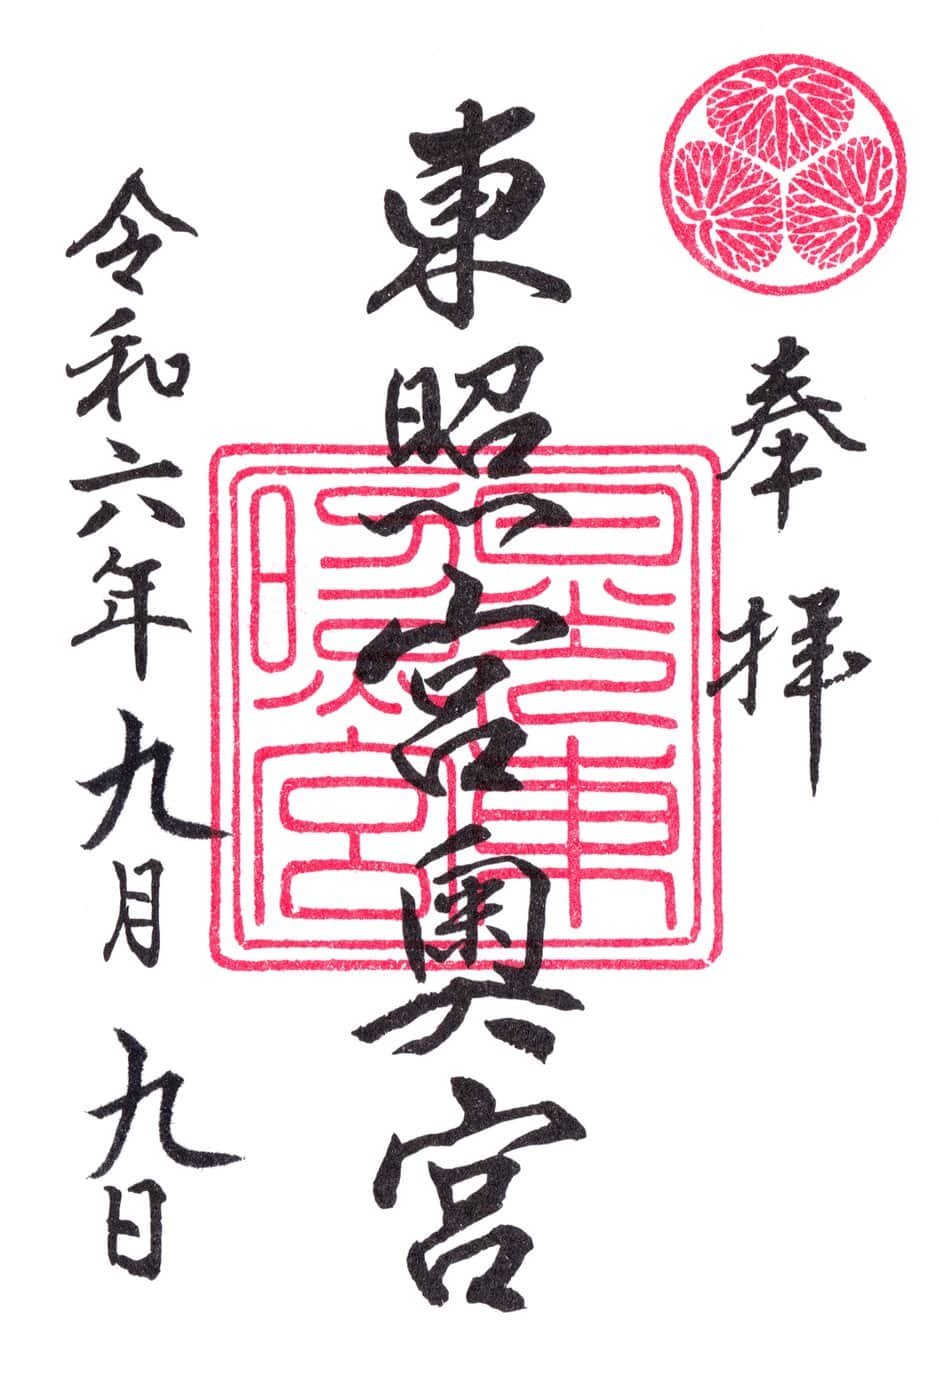 奉拝
東照宮奥宮
日光東照宮
令和六年九月九日